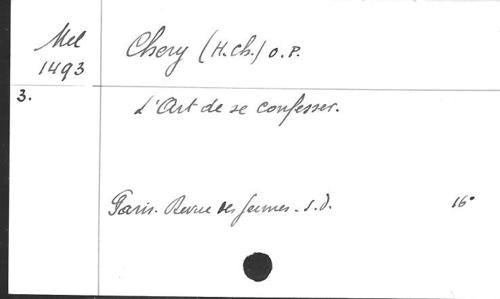 Mel
1493
Chery (H.Ch.) O.P.
3.
L'Art de se confesser.
Paris. Revue des Jeunes. s.d.
16°